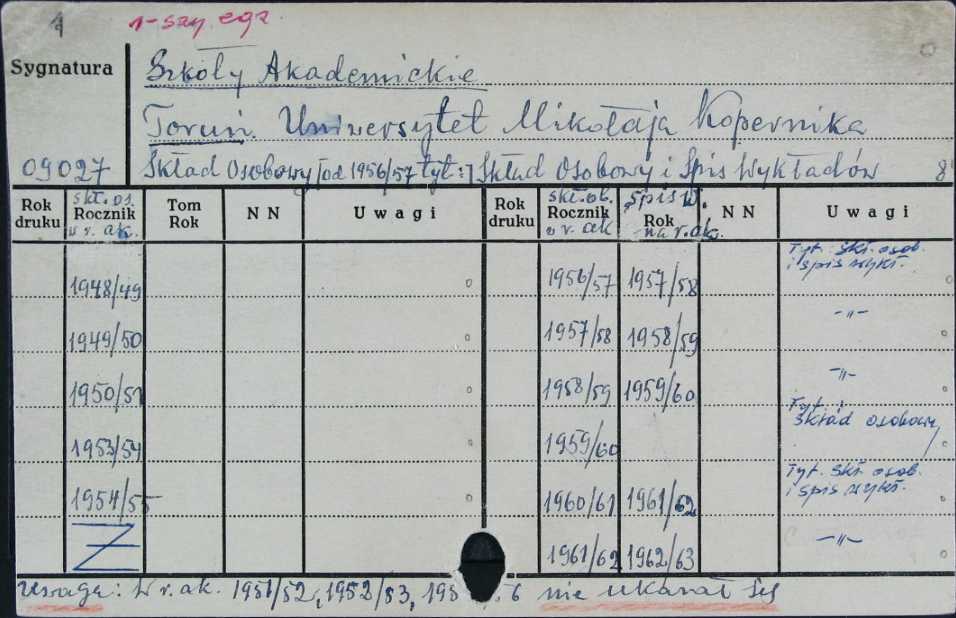 1
1-szy egz.
Sygnatura
Szkoły Akademickie
Toruń. Uniwersytet Mikołaja Kopernika
09027
Skład Osobowy [od 1956/57 tyt:] Skład Osobowy i Spis Wykładów 8°
Rok druku
skł. os. Rocznik w r. ak.
Tom Rok
N N
Uwagi
Rok druku
skł. ob. Rocznik w r. ak.
Spis w. Rok na r. ak.
N N
Uwagi
1948/49 1956/57 1957/58 Tyt. Skł. osob.
i spis wykł.
1949/50 1957/58 1958/59 -"-
1950/51 1958/59 1959/60 -"-
1953/54 1959/60 Tyt.:
Skład osobowy
1954/55 1960/61 1961/62 Tyt. Skł. osob.
i spis wykł.
1961/62 1962/63 -"-
Uwaga: W r. ak. 1951/52, 1952/53, nie ukazał się